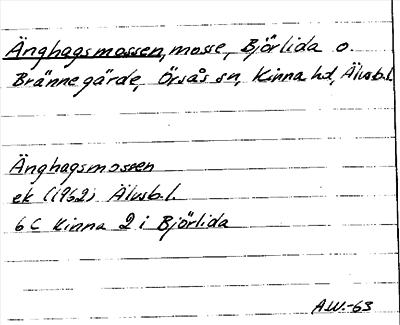 Änghagsmossen, mosse, Björlida o.
Brännegärde, Örsås sn, Kinna hd, Älvsb.l.
Änghagsmossen
ek (1962) Älvsb.l.
6 C Kinna 2 i Björlida
A.W.-63